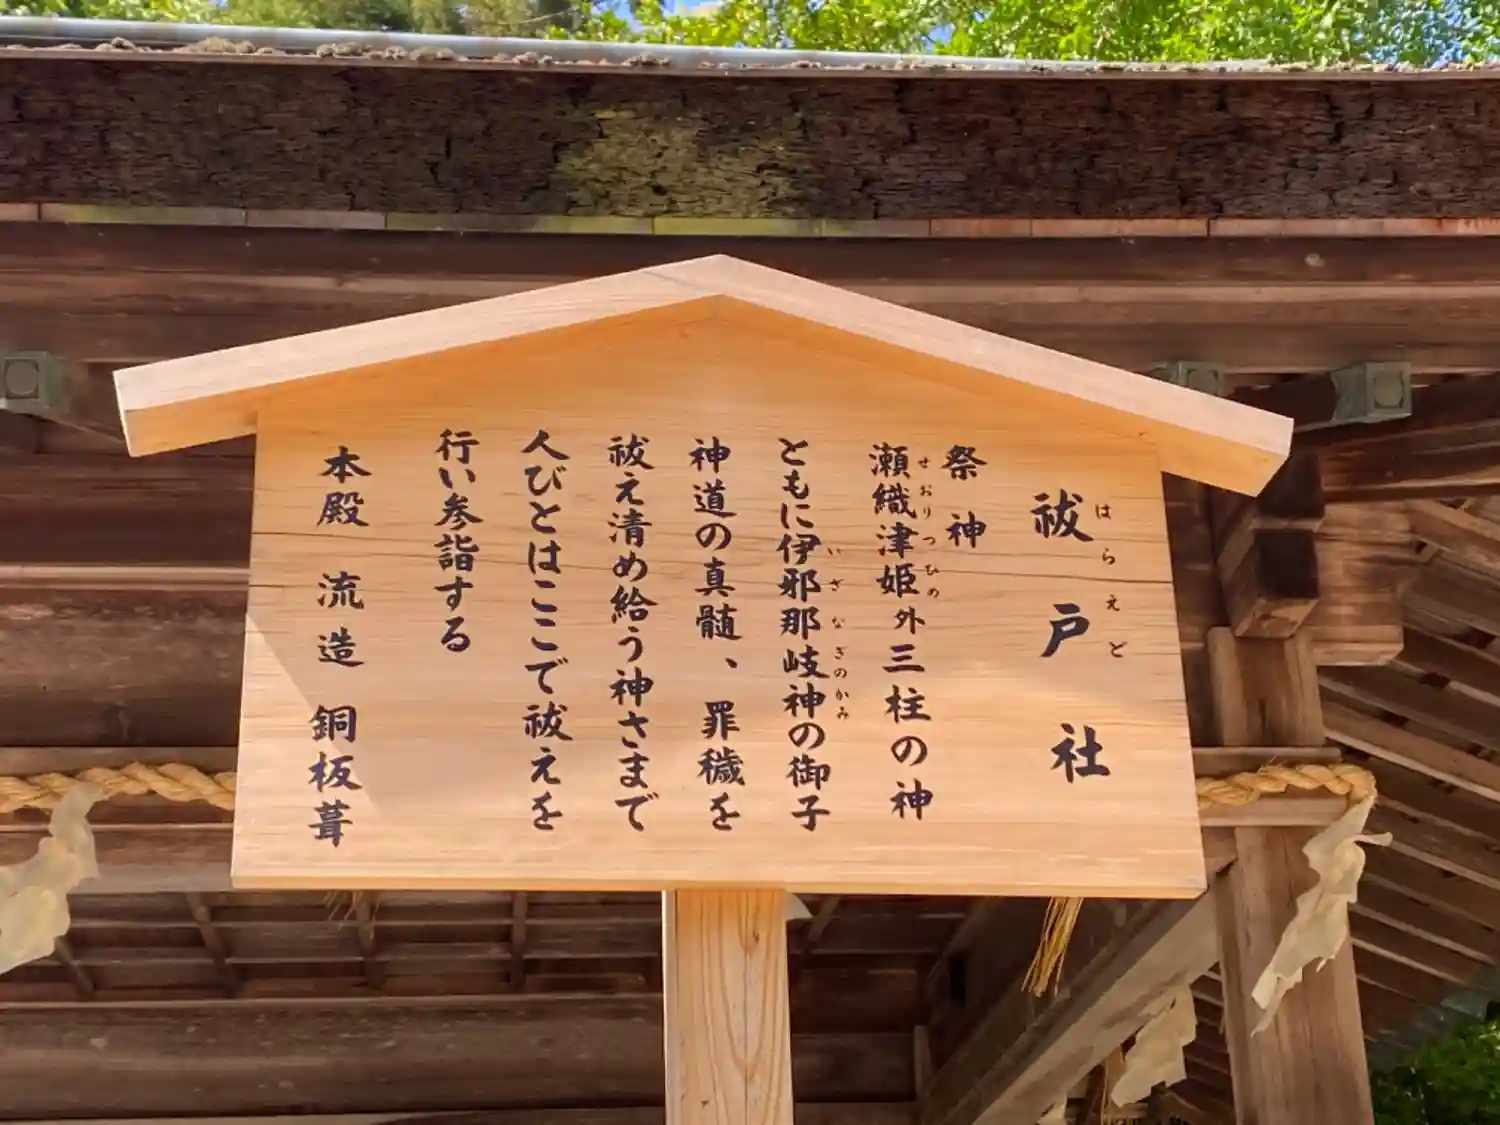 祓戸社
はらえど
祭神
瀬織津姫外三柱の神
せおりつひめ
ともに伊邪那岐神の御子
いざなぎのかみ
神道の真髄、罪穢を
祓え清め給う神さまで
人びとはここで祓えを
行い参詣する
本殿 流造 銅板葺